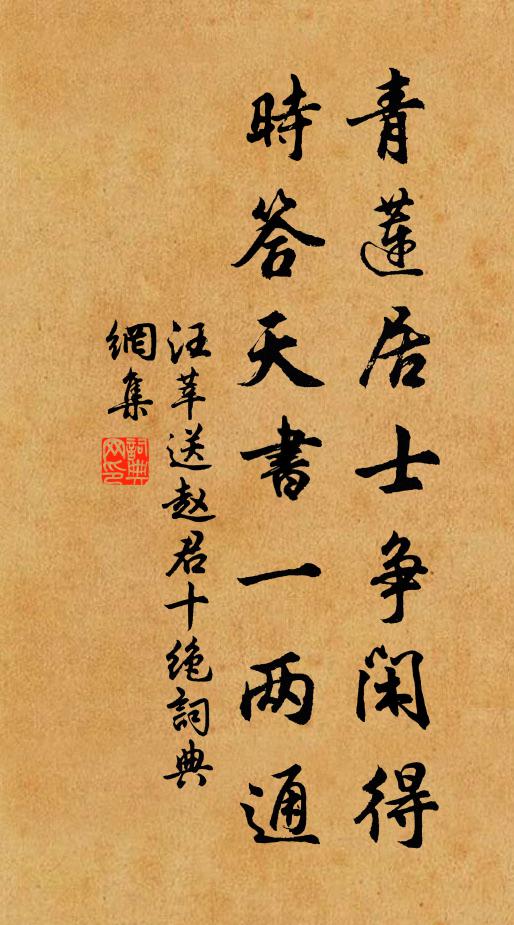 青蓮居士争闲得
時答天書一两通
汪莘送赵君十绝詞典
網集
詞典网印